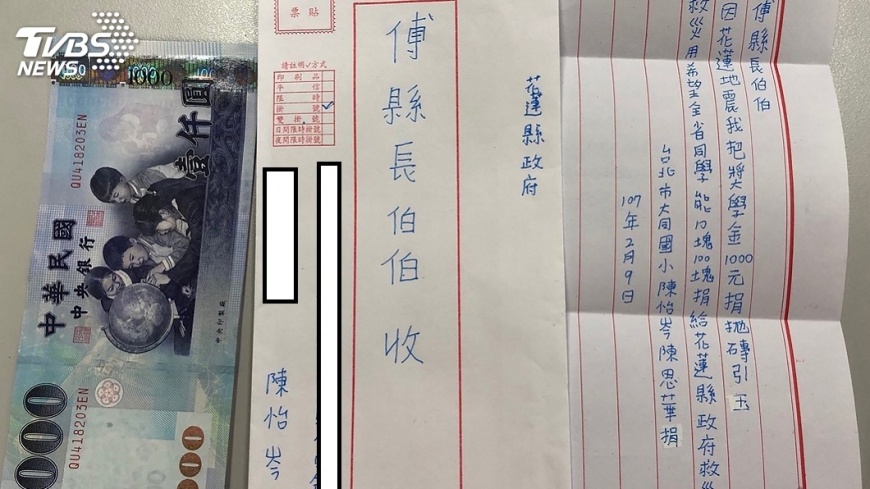 TVBS
NEWS
1000
QU418203EN
壹仟圓
中華民國
中央銀行
中央印製廠
QU418203EN
000
票貼
請註明✓方式
印刷品
平信
限時
掛號 ✓
雙掛號
日間限時掛號
夜間限時掛號
花蓮縣政府
傅縣長伯伯 收
陳怡岑
傅縣長伯伯
因花蓮地震我把獎學金1000元捐拋磚引玉
救災用希望全省同學能10塊100塊捐給花蓮縣政府救災
台北市大同國小陳怡岑陳思華捐
107年2月9日